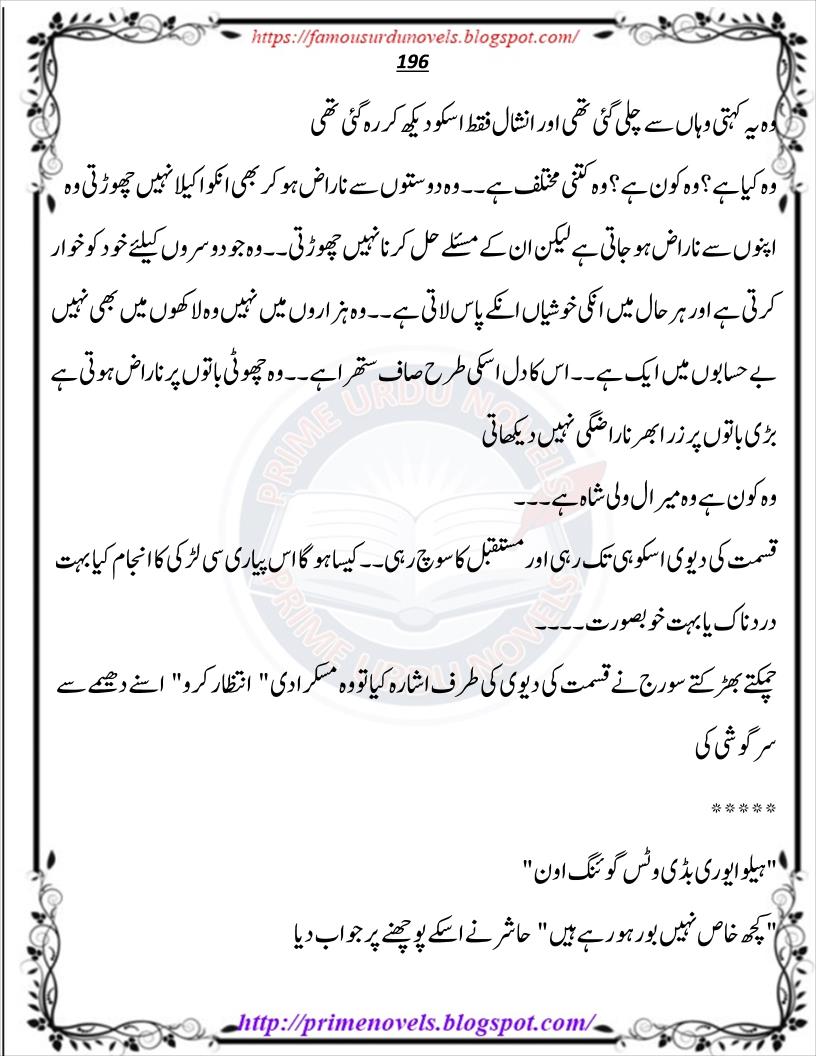 https://famousurdunovels.blogspot.com/
196
وہ یہ کہتی وہاں سے چلی گئی تھی اور انشال فقط اسکو دیکھ کر رہ گئی تھی
وہ کیا ہے؟ وہ کون ہے؟ وہ کتنی مختلف ہے۔۔وہ دوستوں سے ناراض ہو کر بھی انکو اکیلا نہیں چھوڑتی وہ
اپنوں سے ناراض ہو جاتی ہے لیکن ان کے مسئلے حل کرنا نہیں چھوڑتی۔۔وہ جو دوسروں کیلئے خود کو خوار
کرتی ہے اور ہر حال میں انکی خوشیاں انکے پاس لاتی ہے۔۔وہ ہزاروں میں نہیں وہ لاکھوں میں بھی نہیں
بے حسابوں میں ایک ہے۔۔اس کا دل اسکی طرح صاف ستھرا ہے۔۔وہ چھوٹی باتوں پر ناراض ہوتی ہے
بڑی باتوں پر زرا بھر ناراضگی نہیں دیکھاتی
وہ کون ہے وہ میرال ولی شاہ ہے۔۔۔
قسمت کی دیوی اسکو ہی تک رہی اور مستقبل کا سوچ رہی۔۔کیسا ہو گا اس پیاری سی لڑکی کا انجام کیا بہت
دردناک یا بہت خوبصورت۔۔۔۔
چمکتے بھڑکتے سورج نے قسمت کی دیوی کی طرف اشارہ کیا تو وہ مسکرا دی" انتظار کرو" اسنے دھیمے سے
سرگوشی کی
*****
"ہیلو ایوری بڈی وٹس گوئنگ اون"
"کچھ خاص نہیں بور ہو رہے ہیں" حاشر نے اسکے پوچھنے پر جواب دیا
PRIME URDU NOVELS
PRIME URDU NOVELS
http://primenovels.blogspot.com/